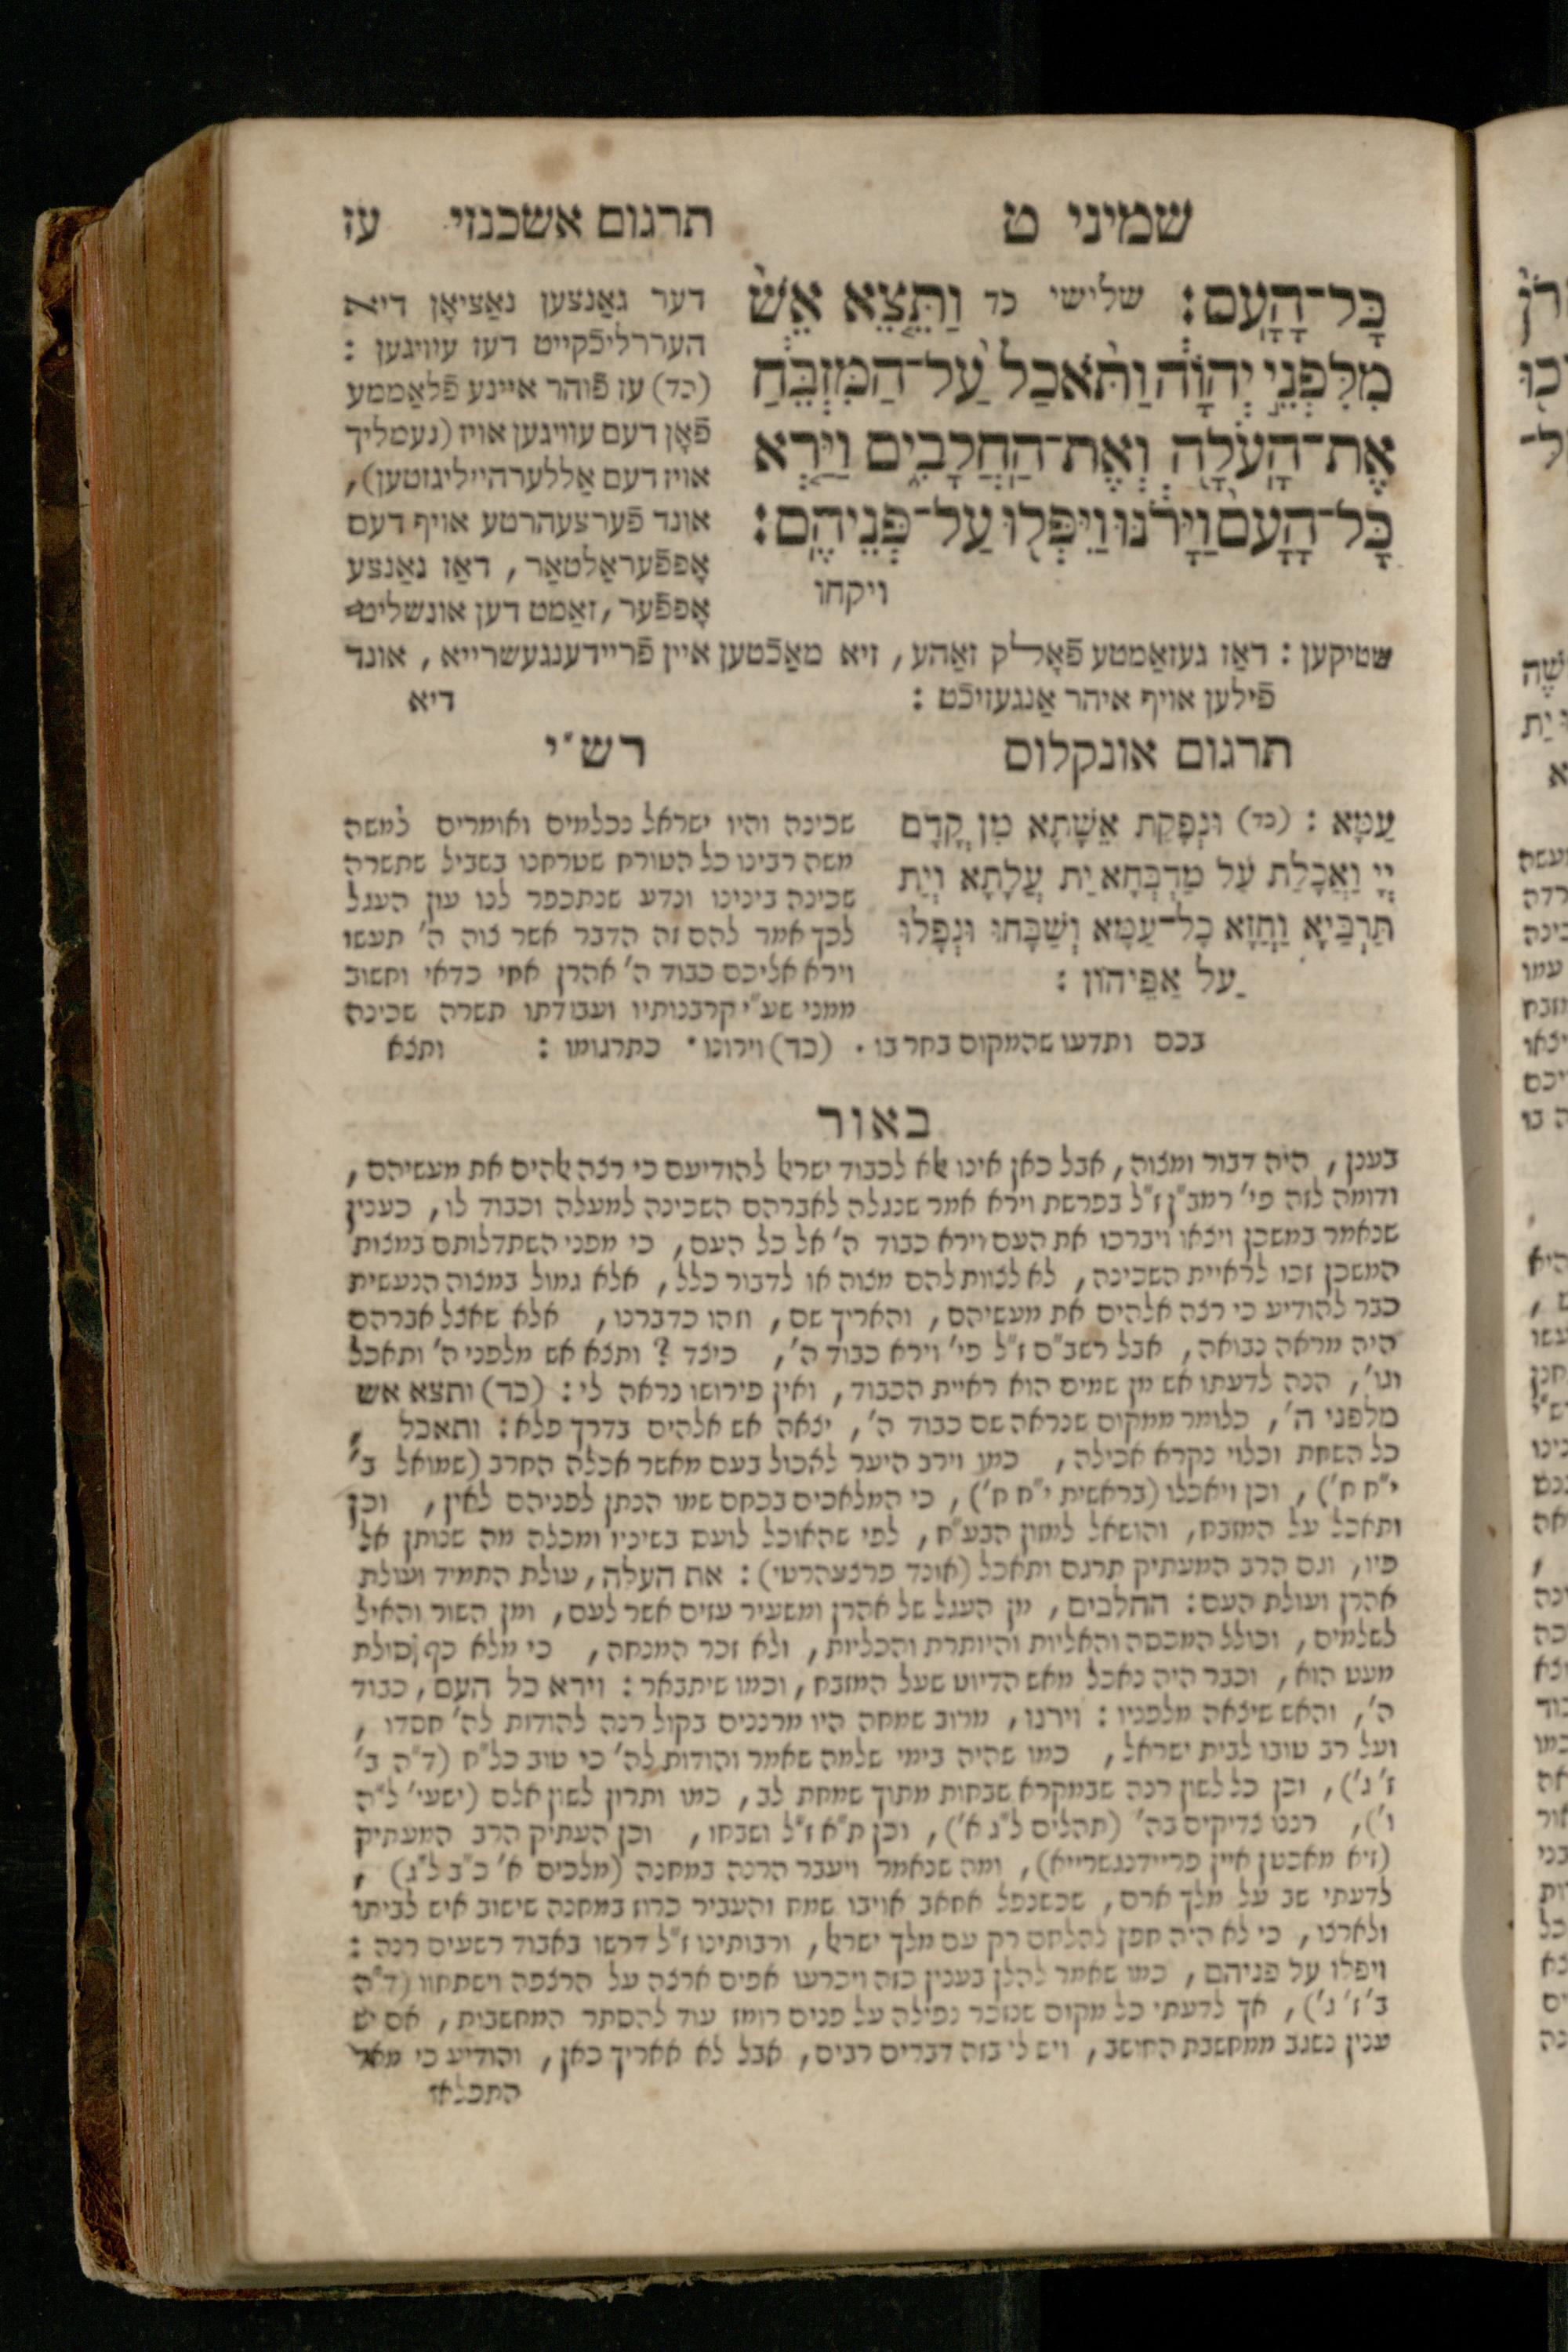 שמיני ט תרגום אשכנזי עז
כָּל־הָעָם: שלישי כד וַתֵּצֵא אֵשׁ
מִלִּפְנֵי יְהוָֹה וַתֹּאכַל עַל־הַמִּזְבֵּחַ
אֶת־הָעֹלָה וְאֶת־הַחֲלָבִים וַיַּרְא
כָּל־הָעָם וַיָּרֹנּוּ וַיִּפְּלוּ עַל־פְּנֵיהֶם:
ויקחו
דער גאַנצען נאַציאָן דיא
העררליכֿקייט דעז עוויגען :
(כד) עז פֿוהר איינע פֿלאַממע
פֿאָן דעם עוויגען אויז (נעמליך
אויז דעם אַללערהייליגזטען),
אונד פֿערצעהרטע אויף דעם
אָפּפֿעראַלטאַר, דאַז גאַנצע
אָפּפֿער, זאַמט דען אונשליט־
שטיקען : דאַז געזאַמטע פֿאָלק זאַהע, זיא מאַכֿטען איין פֿריידענגעשרייא, אונד
פֿילען אויף איהר אַנגעזיכֿט : דיא
תרגום אונקלוס
עַמָּא : (כד) וּנְפָקַת אֵשָׁתָא מִן קֳדָם
יְיָ וַאֲכָלַת עַל מַדְבְּחָא יַת עֲלָתָא וְיַת
תַּרְבַּיָּא וַחֲזָא כָל־עַמָּא וְשַׁבָּחוּ וּנְפָלוּ
עַל אַפֵּיהוֹן :
רש"י
שכינה והיו ישראל נכלמים ואומרים למשה
משה רבינו כל הטורח שטרחנו בשביל שתשרה
שכינה בינינו ונדע שנתכפר לנו עון העגל
לכך אמר להם זה הדבר אשר צוה ה' תעשו
וירא אליכם כבוד ה' אהרן אחי כדאי וחשוב
ממני שע"י קרבנותיו ועבודתו תשרה שכינה
בכם ותדעו שהמקום בחר בו. (כד) וירונו. כתרגומו : ותצא
באור
בענן, היה דבור ומצוה, אבל כאן אינו אלא לכבוד ישראל להודיעם כי רצה אלהים את מעשיהם,
ודומה לזה פי' רמב"ן ז"ל בפרשת וירא אמר שנגלה לאברהם השכינה למעלה וכבוד לו, כענין
שנאמר במשכן ויצאו ויברכו את העם וירא כבוד ה' אל כל העם, כי מפני השתדלותם במצות
המשכן זכו לראיית השכינה, לא לצוות להם מצוה או לדבור כלל, אלא גמול במצוה הנעשית
כבר להודיע כי רצה אלהים את מעשיהם, והאריך שם, וזהו כדברנו, אלא שאצל אברהם
היה מראה נבואה, אבל רשב"ם ז"ל פי' וירא כבוד ה', כיצד ? ותצא אש מלפני ה' ותאכל
וגו', הנה לדעתו אש מן שמים הוא ראיית הכבוד, ואין פירושו נראה לי : (כד) ותצא אש
מלפני ה', כלומר ממקום שנראה שם כבוד ה', יצאה אש אלהים בדרך פלא : ותאכל,
כל השחת וכלוי נקרא אכילה, כמו וירב היער לאכול בעם מאשר אכלה החרב (שמואל ב'
י"ח ח'), וכן ויאכלו (בראשית י"ח ח'), כי המלאכים בכחם שמו הנתן לפניהם לאין, וכן
ותאכל על המזבח, והושאל למזון הבע"ח, לפי שהאוכל לועס בשיניו ומכלה מה שנותן אל
פיו, וגם הרב המעתיק תרגם ותאכל (אונד פרצעהרטי) : את העלה, עולת התמיד ועולת
אהרן ועולת העם : החלבים, מן העגל של אהרן ומשעיר עזים אשר לעם, ומן השור והאיל
לשלמים, וכולל המכסה והאליות והיותרת והכליות, ולא זכר המנחה, כי מלא כף סולת
מעט הוא, וכבר היה נאכל מאש הדיוט שעל המזבח, וכמו שיתבאר : וירא כל העם, כבוד
ה', והאש שיצאה מלפניו : וירנו, מרוב שמחה היו מרננים בקול רנה להודות לה' חסדו,
ועל רב טובו לבית ישראל, כמו שהיה בימי שלמה שאמר והודות לה' כי טוב כל"ח (ד"ה ב'
ז' ג'), וכן כל לשון רנה שבמקרא שבחות מתוך שמחת לב, כמו ותרון לשון אלם (ישעי' ל"ה
ו'), רננו צדיקים בה' (תהלים ל"ג א'), וכן ת"א ז"ל ושבחו, וכן העתיק הרב המעתיק
(זיא מאכטן איין פריידנגשרייא), ומה שנאמר ויעבר הרנה במחנה (מלכים א' כ"ב ל"ג),
לדעתי שב על מלך ארם, שכשנפל אחאב אויבו שמח והעביר כרוז במחנה שישוב איש לביתו
ולארצו, כי לא היה חפץ להלחם רק עם מלך ישראל, ורבותינו ז"ל דרשו באבוד רשעים רנה :
ויפלו על פניהם, כמו שאמר להלן בענין כזה ויכרעו אפים ארצה על הרצפה וישתחוו (ד"ה
ב' ז' ג'), אך לדעתי כל מקום שנזכר נפילה על פנים רומז עוד להסתר המחשבות, אם יש
ענין נשגב ממחשבת החושב, ויש לי בזה דברים רבים, אבל לא אאריך כאן, והודיע כי מאז